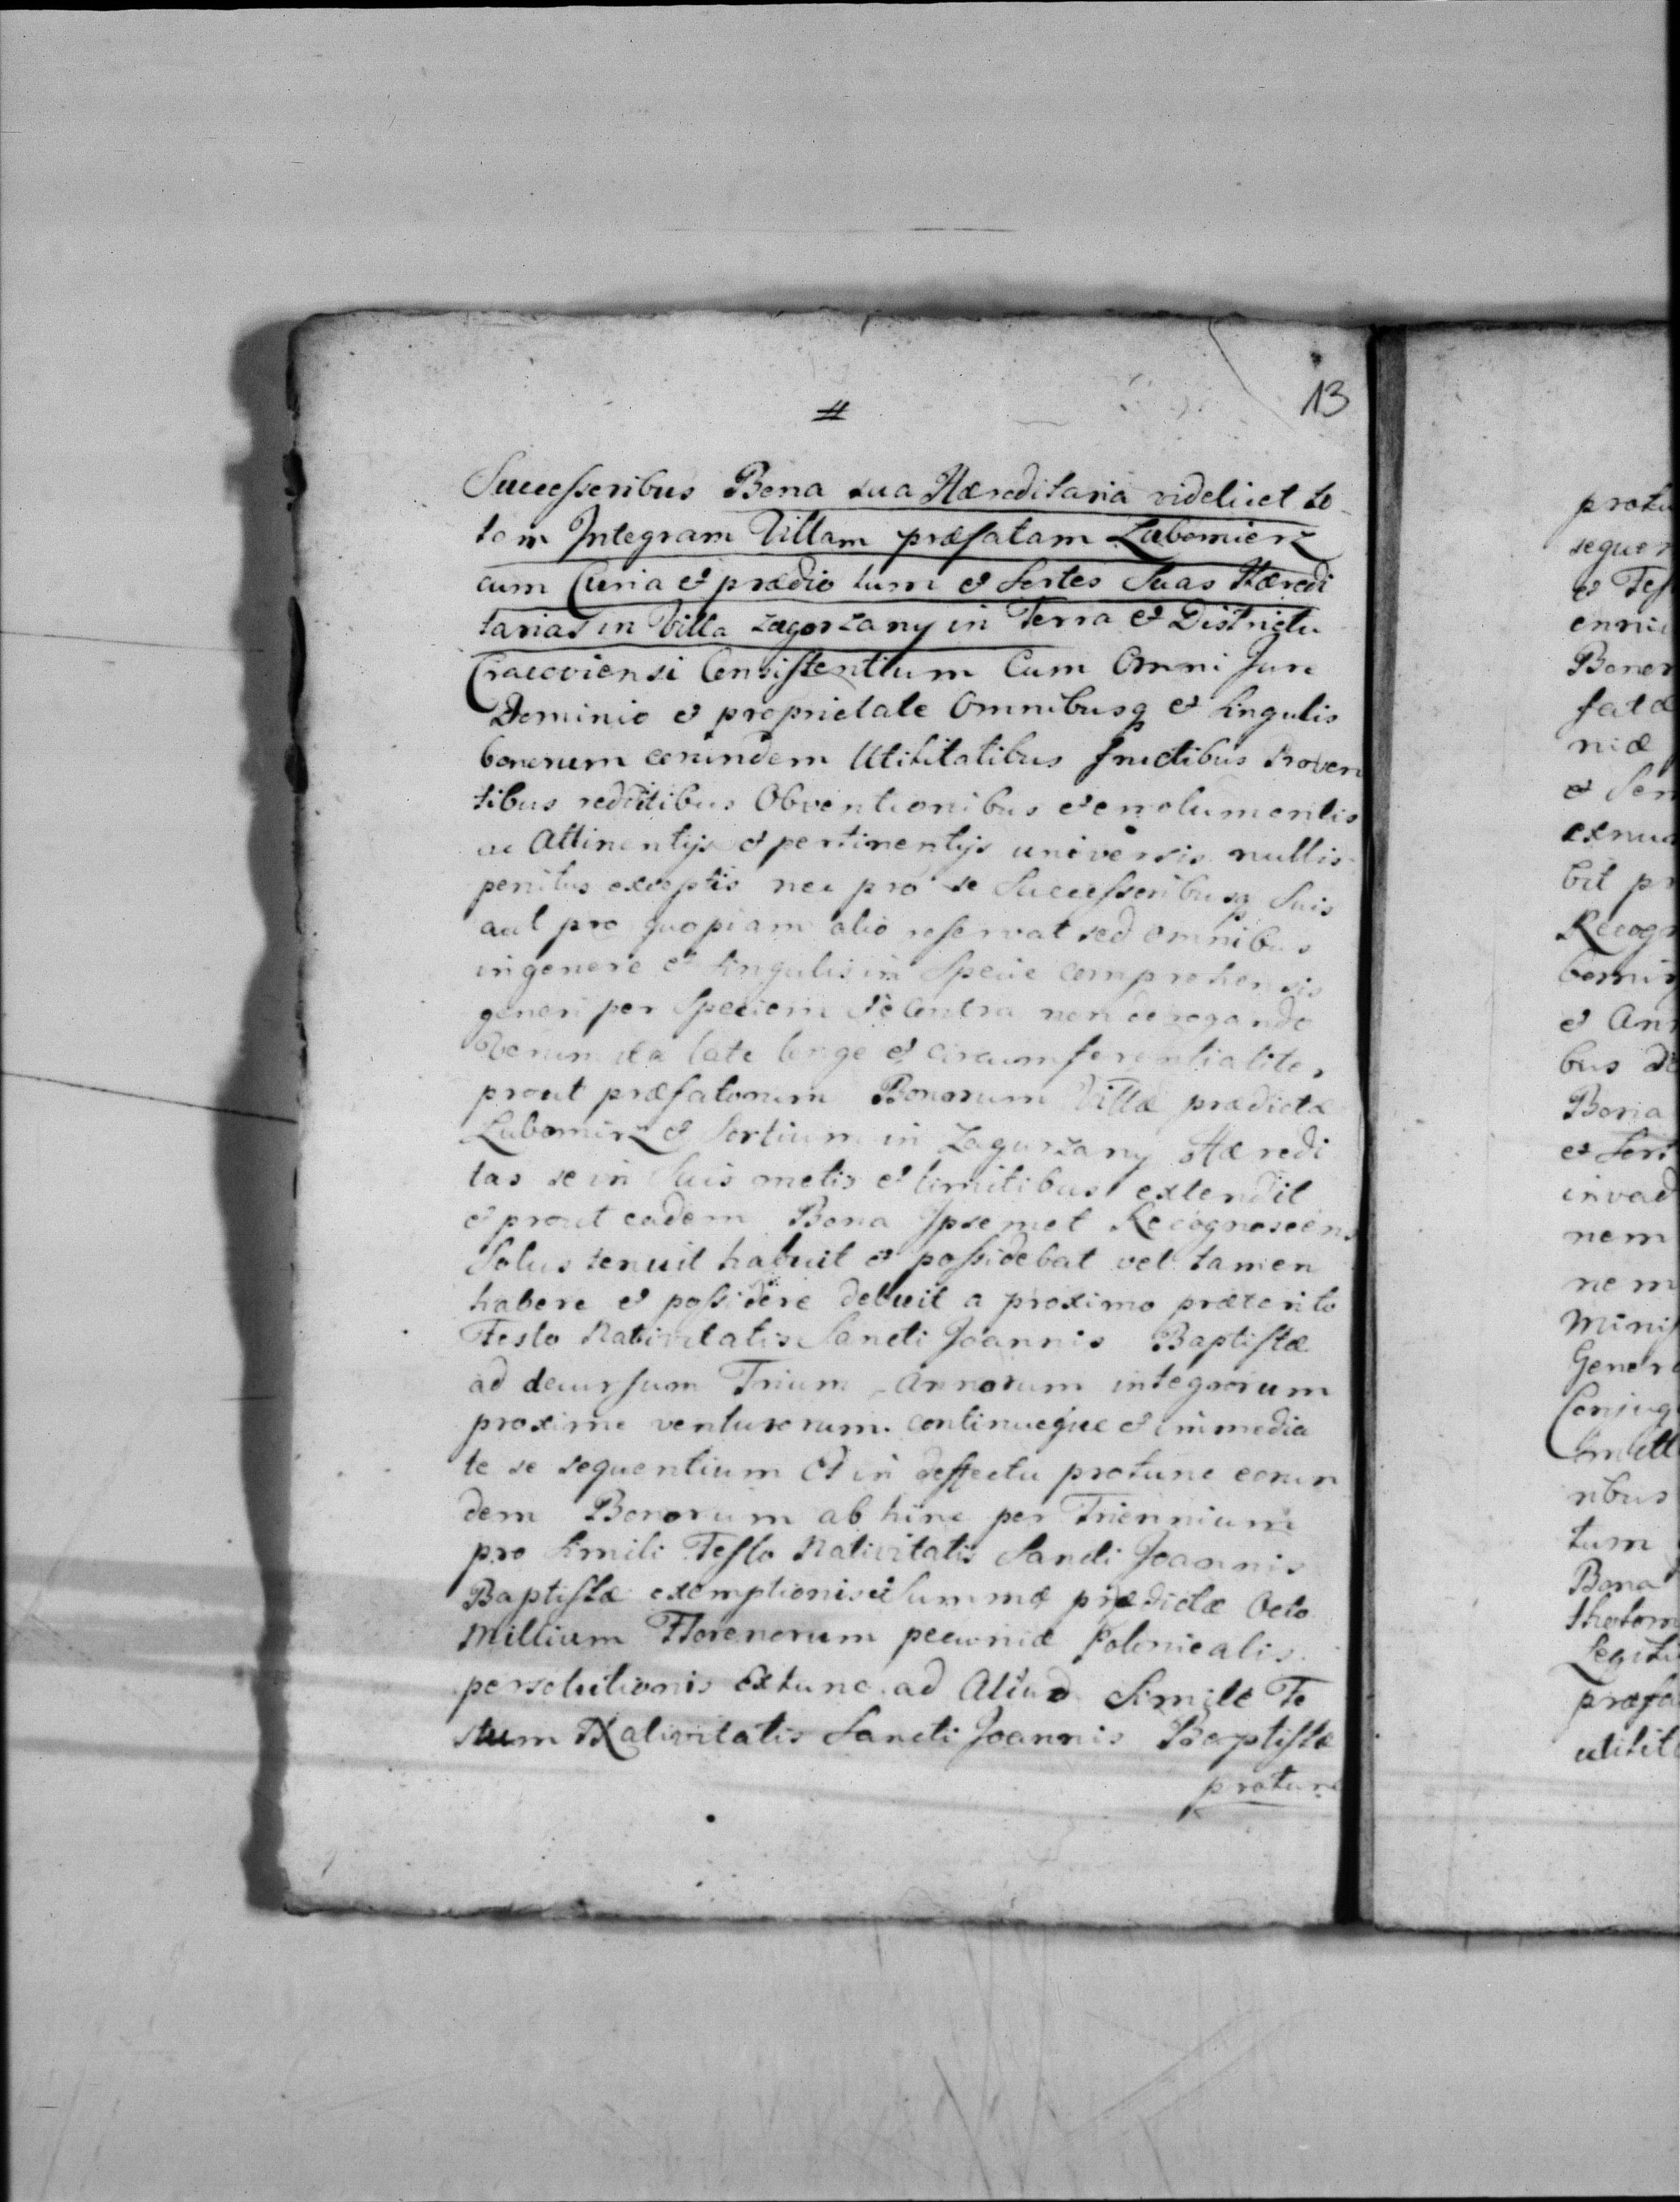 13
#
Successoribus Bona sua Hæreditaria videlicet to
tam Integram Villam præfatam Lubomierz
cum Curia et prædio tum et Sortes Suas Hæredi
tarias in Villa Zagorzany in Terra et Districtu
Cracoviensi Consistentium Cum Omni Jure
Dominio et proprietate Omnibusq et Singulis
bonorum eorundem Utilitatibus fructibus Proven
tibus redditibus Obventionibus et emolumentis
ac Attinentijs et pertinentijs universis nullis
penitus exceptis nec pro se Successoribusq Suis
aut pro quopiam alio reservat sed omnibus
in genere et Singulis in Specie comprehensis
generi per Speciem et e Contra non derogando
bonum ita late longe et circumferentialiter
prout præfatorum Bonorum Villæ prædictæ
Lubomirz et Sortium in Zagurzany Hæredi
tas se in Suis metis et limitibus extendit
et prout eadem Bona Ipsemet Recognoscens
Solus tenuit habuit et possidebat vel tamen
habere et possidere debuit a proximo præterito
Festo Nativitatis Sancti Joannis Baptistæ
ad decursum Trium Annorum integrorum
proxime venturorum continueque et immedia
te se sequentium Et in deffectu protunc eorun
dem Bonorum ab hinc per Triennium
pro Simili Festo Nativitatis Sancti Joannis
Baptistæ exemptionis Summæ prædictæ Octo
Millium Florenorum pecuniæ Polonicalis
persolutionis Extunc ad Aliud Simile Fe
stum Nativitatis Sancti Joannis Baptistæ
protunc
protu
sequen
et Fes
enni
Bonor
fatæ
niæ
et Sor
exnu
bit pr
Recogn
bomir
et An
bus di
Bona
et Sort
invad
nem
nem
Minis
Genero
Conjug
Smitt
ribus
tum
Bona
Legiti
præfa
utilit